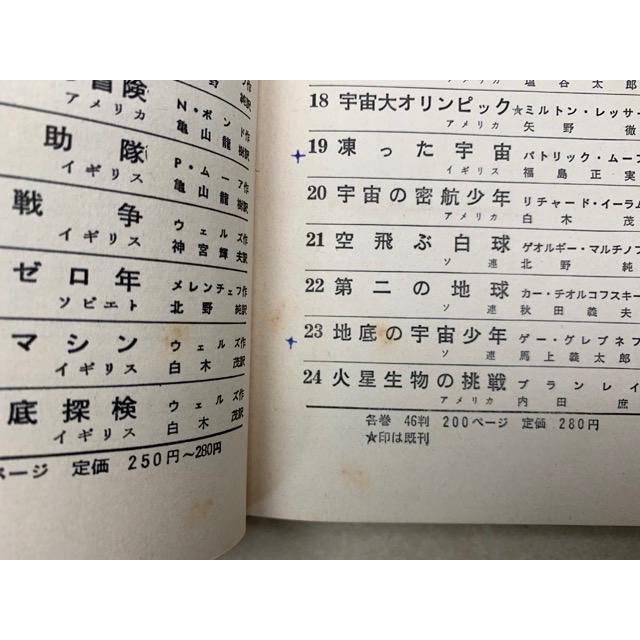 冒険
アメリカ
N・ボンド作
亀山龍樹訳
助隊
イギリス
P・ムーア作
亀山龍樹訳
戦争
イギリス
ウェルズ作
神宮輝夫訳
ゼロ年
ソビエト
メレンチェフ作
北野純訳
マシン
イギリス
ウェルズ作
白木茂訳
底探検
イギリス
ウェルズ作
白木茂訳
ページ 定価 250円～280円
アメリカ 塩谷太郎
18 宇宙大オリンピック ★ミルトン・レッサー
アメリカ 矢野徹
19 凍った宇宙 パトリック・ムー
イギリス 福島正実
20 宇宙の密航少年 リチャード・イーラム
アメリカ 白木茂
21 空飛ぶ白球 ゲオルギー・マルチノフ
ソ連 北野純
22 第二の地球 カー・チオルコフスキー
ソ連 秋田義夫
23 地底の宇宙少年 ゲー・グレブネフ
ソ連 馬上義太郎
24 火星生物の挑戦 ブランレイ
アメリカ 内田庶
各巻 46判 200ページ 定価 280円
★印は既刊